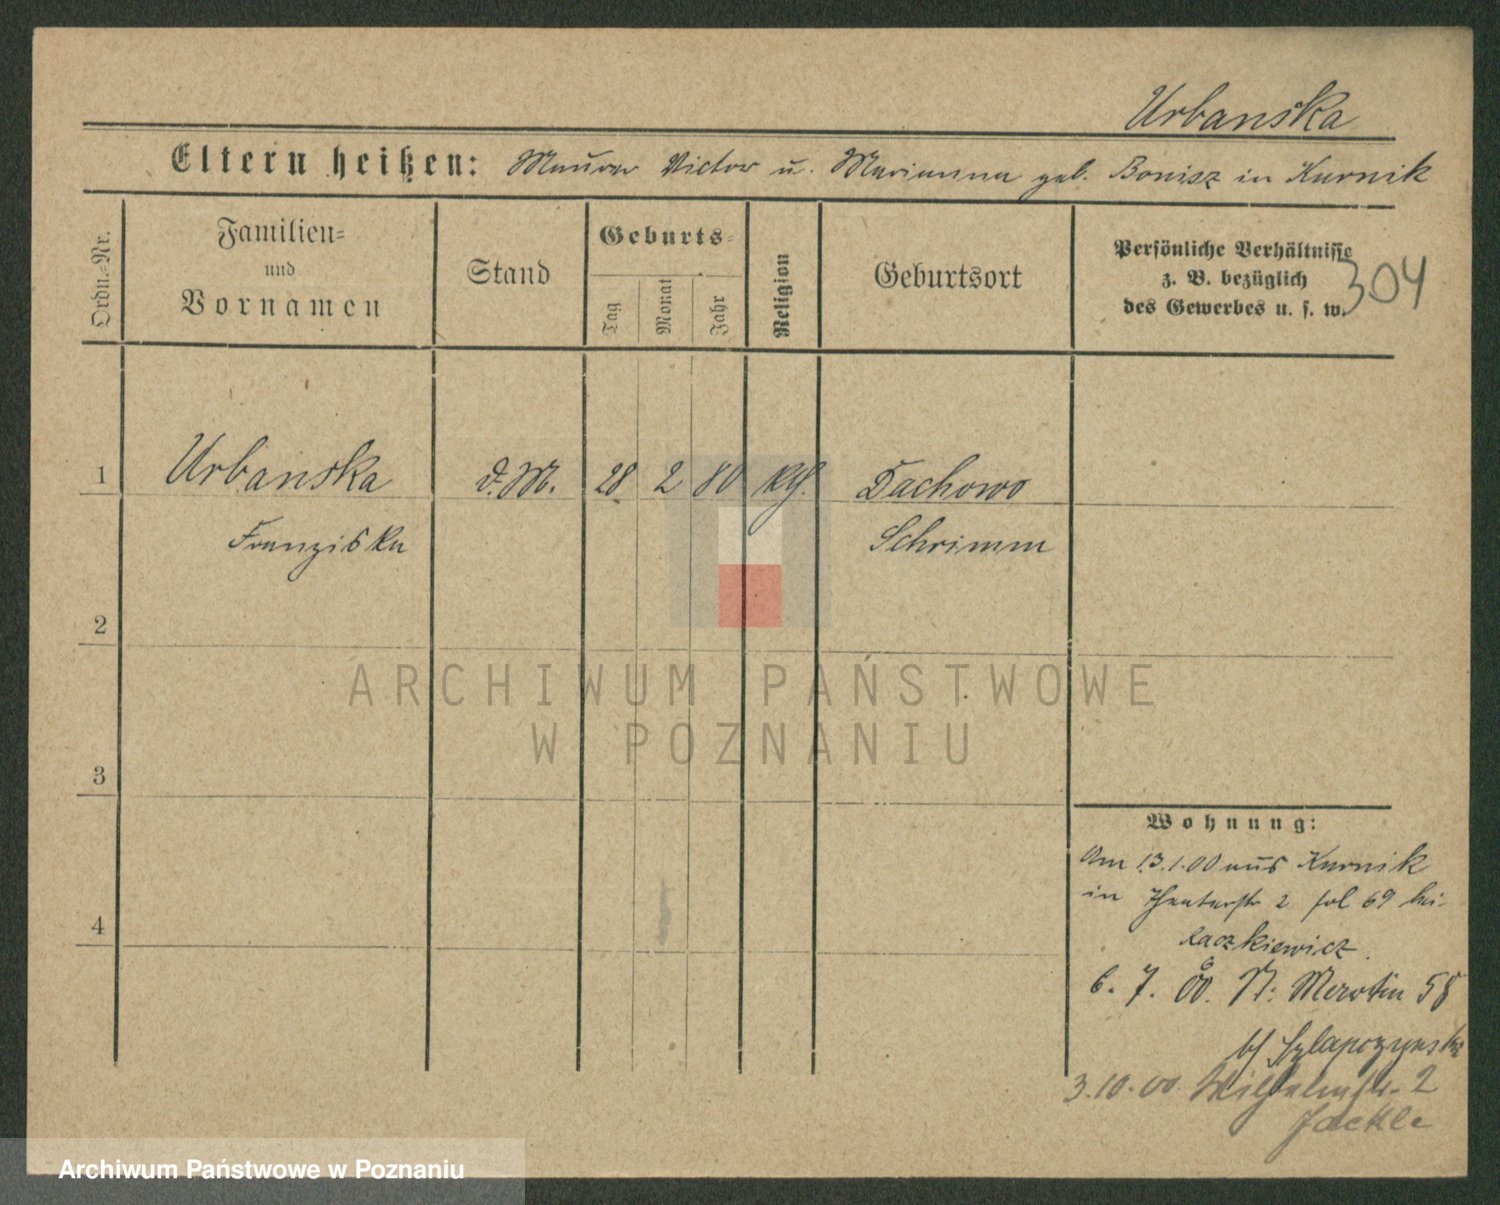 Urbanska
Eltern heißen: Maurer Victor u. Marianna geb. Bonisz in Kurnik
Ordn.-Nr.
Familien-
und
Vornamen
Stand
Geburts-
Tag
Monat
Jahr
Religion
Geburtsort
Persönliche Verhältnisse
z. B. bezüglich
des Gewerbes u. s. w.
304
1 Urbanska d.M. 28 2 80 kth. Dachowo
Franziska Schrimm
2
3
4
Wohnung:
Am 13.1.00 aus Kurnik
in Theaterstr 2 fol 69 bei
Raczkiewicz.
6. 7. 00. St: Martin 58
b/
3.10.00 Wilhelmstr. 2
Jaekle
ARCHIWUM PAŃSTWOWE
W POZNANIU
Archiwum Państwowe w Poznaniu